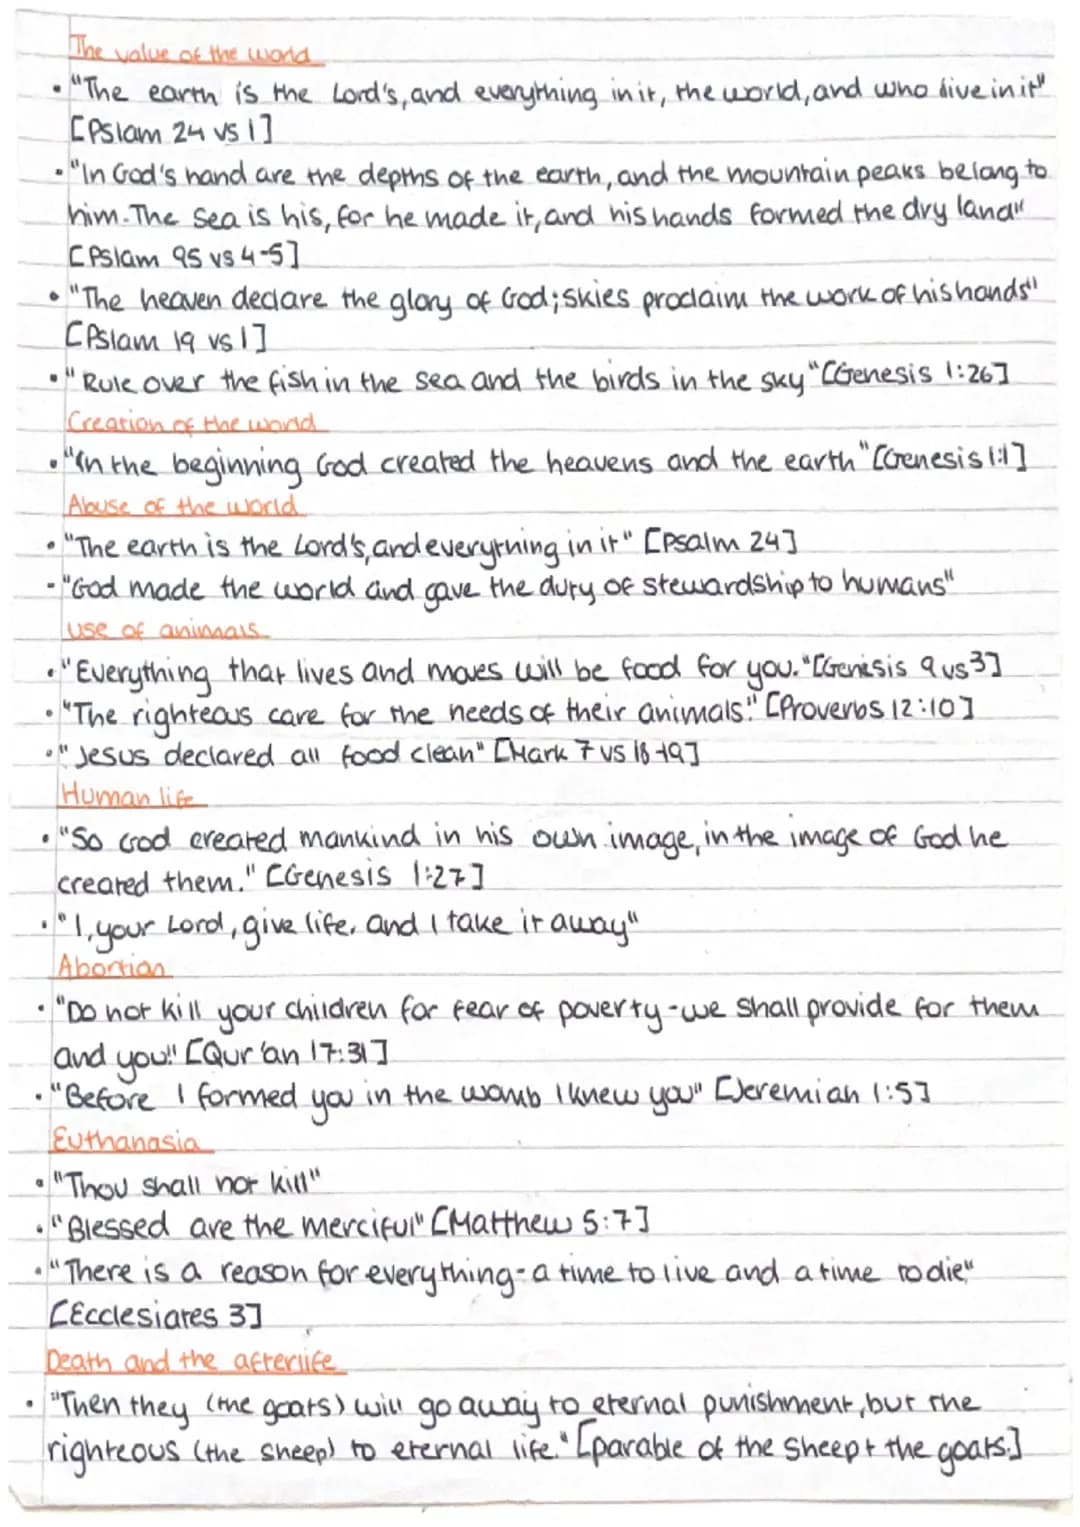 The value of the world
• "The earth is the Lord's, and everything in it, the world, and who live in it"
[Pslam 24 vs 1]
• "In God's hand are the depths of the earth, and the mountain peaks belong to
him. The sea is his, for he made it, and his hands formed the dry land"
[Pslam 95 vs 4-5]
• "The heaven declare the glory of God; skies proclaim the work of his hands"
[Pslam 19 vs 1]
• "Rule over the fish in the sea and the birds in the sky" [Genesis 1:26]
Creation of the world
• "In the beginning God created the heavens and the earth" [Genesis 1:1]
Abuse of the world
• "The earth is the Lord's, and everything in it" [Psalm 24]
- "God made the world and gave the duty of stewardship to humans"
use of animals
• "Everything that lives and moves will be food for you." [Genesis 9 vs 3]
• "The righteous care for the needs of their animals." [Proverbs 12:10]
• "Jesus declared all food clean" [Mark 7 vs 18-19]
Human life
• "So God created mankind in his own image, in the image of God he
created them." [Genesis 1:27]
• "I, your Lord, give life, and I take it away"
Abortion
• "Do not kill your children for fear of poverty - we shall provide for them
and you." [Qur'an 17:31]
• "Before I formed you in the womb I knew you" [Jeremiah 1:5]
Euthanasia
• "Thou shall not kill"
• "Blessed are the merciful" [Matthew 5:7]
• "There is a reason for everything - a time to live and a time to die"
[Ecclesiates 3]
Death and the afterlife
• "Then they (the goats) will go away to eternal punishment, but the
righteous (the sheep) to eternal life." [parable of the Sheep + the goats.]